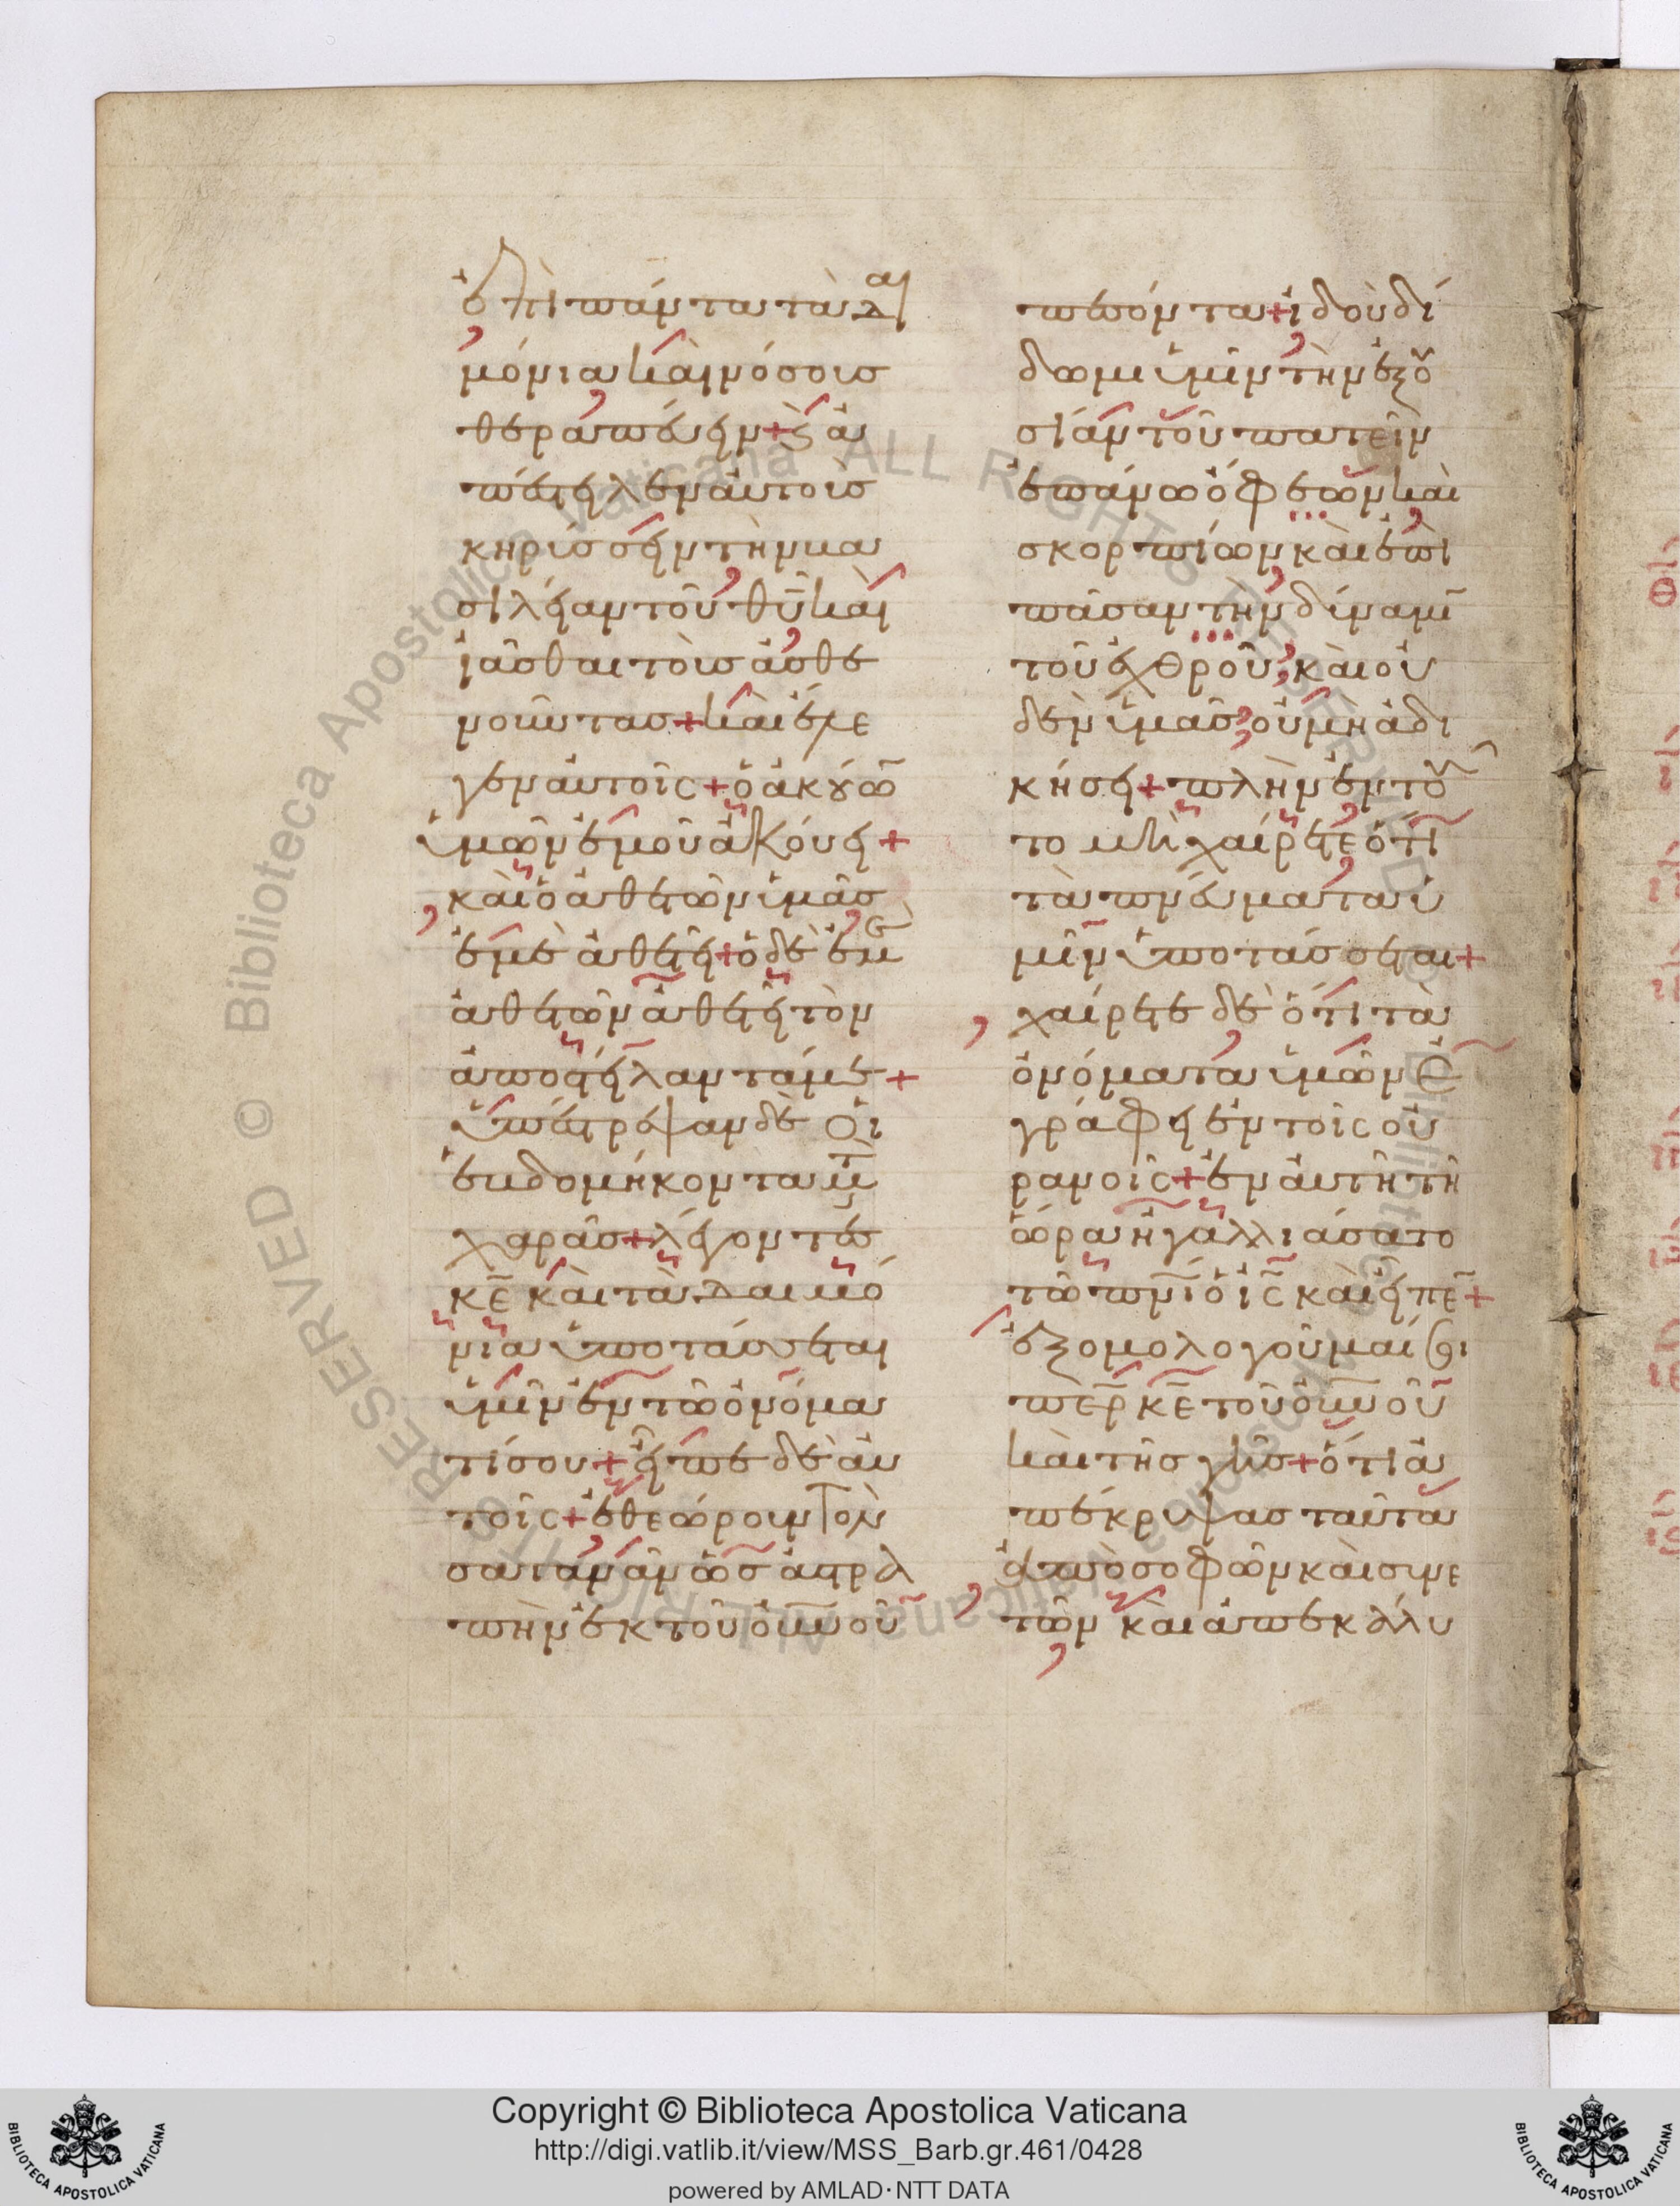 ἐπὶ πάντα τὰ δαι
μόνια καὶ νόσοις
θεραπέυειν + ϛ ἀ
πέστειλεν ἀυτοὺς
κηρύσσειν τὴν βα
σιλείαν τοῦ θῦ καὶ
ἰᾶσθαι τοὺς ἀσθε
νοῦντας + καὶ ἔλε
γεν ἀυτοῖς + ὁ ἀκούω
ὑμῶν ἐμοῦ ἀκόυει +
καὶ ὁ ἀθετῶν ὑμᾶς
ἐμὲ ἀθετεῖ + ὁ δὲ ἐμὲ
ἀθετῶν ἀθετεῖ τὸν
ἀποστείλαντά με +
ὑπέστρεψαν δὲ οἱ
ἑβδομήκοντα μετ
χαρᾶς + λέγοντες
κε καὶ τὰ δαιμό
νια ὑποτάσσεται
ὑμῖν ἐν τῶ ὀνόμα
τί σου + εἶπε δὲ ἀυ
τοῖς + ἐθεώρουν τὸν
σατανᾶν ὡς ἀστρα
πὴν ἐκ τοῦ οὐνοῦ
πεσόντα + ἰδοὺ δί
δωμι ὑμῖν τὴν ἐξου
σίαν τοῦ πατεῖν
ἐπάνω ὄφεων καὶ
σκορπίων καὶ ἐπὶ
πᾶσαν τὴν δύναμι
τοῦ ἐχθροῦ, καὶ οὐ
δὲν ὑμᾶς οὐ μὴ ἀδι
κήσει + πλὴν ἐν τού
τω μὴ χαίρετε ὅτι
τὰ πνέυματα ὑ
μῖν ὑποτάσσεται +
χαίρετε δὲ ὅτι τὰ
ὀνόματα ὑμῶν ἐ
γράφη ἐν τοῖς οὐ
ρανοῖς + ἐν ἀυτῆ τῆ
ὥρα ἠγαλλιάσατο
τῶ πνι ὁ ις καὶ εἶπε +
ἐξομολογοῦμαί σοι
περ κε τοῦ οὐνοῦ
καὶ τῆς γῆς + ὅτι ἀ
πέκρυψας ταῦτα
ἀπὸ σοφῶν καὶ συνε
τῶν καὶ ἀπεκάλυ
© Biblioteca Apostolica Vaticana ALL RIGHTS RESERVED © Biblioteca Apostolica Vaticana ALL RIGHTS RESERVED
Copyright © Biblioteca Apostolica Vaticana
http://digi.vatlib.it/view/MSS_Barb.gr.461/0428
powered by AMLAD·NTT DATA
BIBLIOTECA APOSTOLICA VATICANA
BIBLIOTECA APOSTOLICA VATICANA